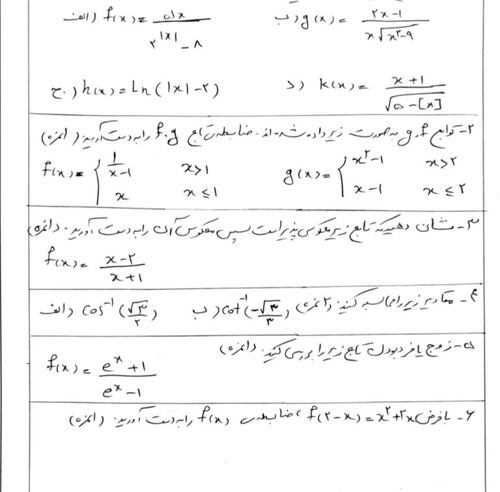 الف) f(x) = ۵x / ۲^|x| - ۸   ب) g(x) = ۲x-۱ / x√x^۲-۹
ج) h(x) = Ln(|x|-۲)   د) k(x) = x+۱ / √۵-[x]
۲- توابع f، g به صورت زیر داده شده‌اند. ضابطه تابع f.g را به دست آورید (۱نمره)
f(x) = { 1/x-1   x>1
x   x≤1
g(x) = { x^۲-1   x>۲
x-1   x≤۲
۳- نشان دهید که تابع زیر معکوس پذیر است سپس معکوس آن را به دست آورید. (۱نمره)
f(x) = x-۲ / x+1
۴- مقادیر زیر را محاسبه کنید: (۲نمره) الف) cos^-1(√۳/۲)   ب) cot^-1(-√۳/۳)
۵- زوج یا فرد بودن تابع زیر را بررسی کنید. (۱نمره)
f(x) = e^x+1 / e^x-1
۶- با فرض f(۲-x) = x^۲+۳x، ضابطه‌ی f(x) را به دست آورید. (۱نمره)